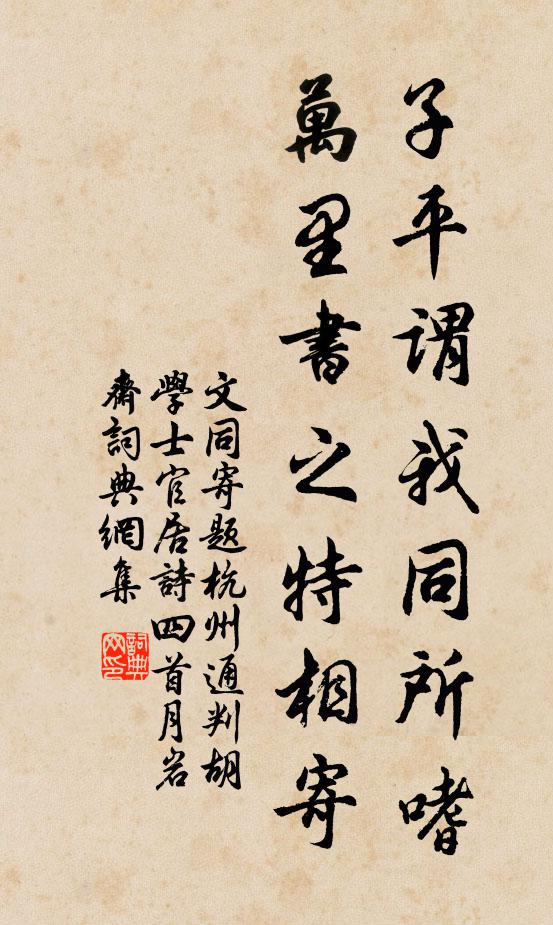 子平謂我同所嗜
萬里書之特相寄
文同寄题杭州通判胡
學士官居詩四首月岩
齋詞典網集
詞典
网印